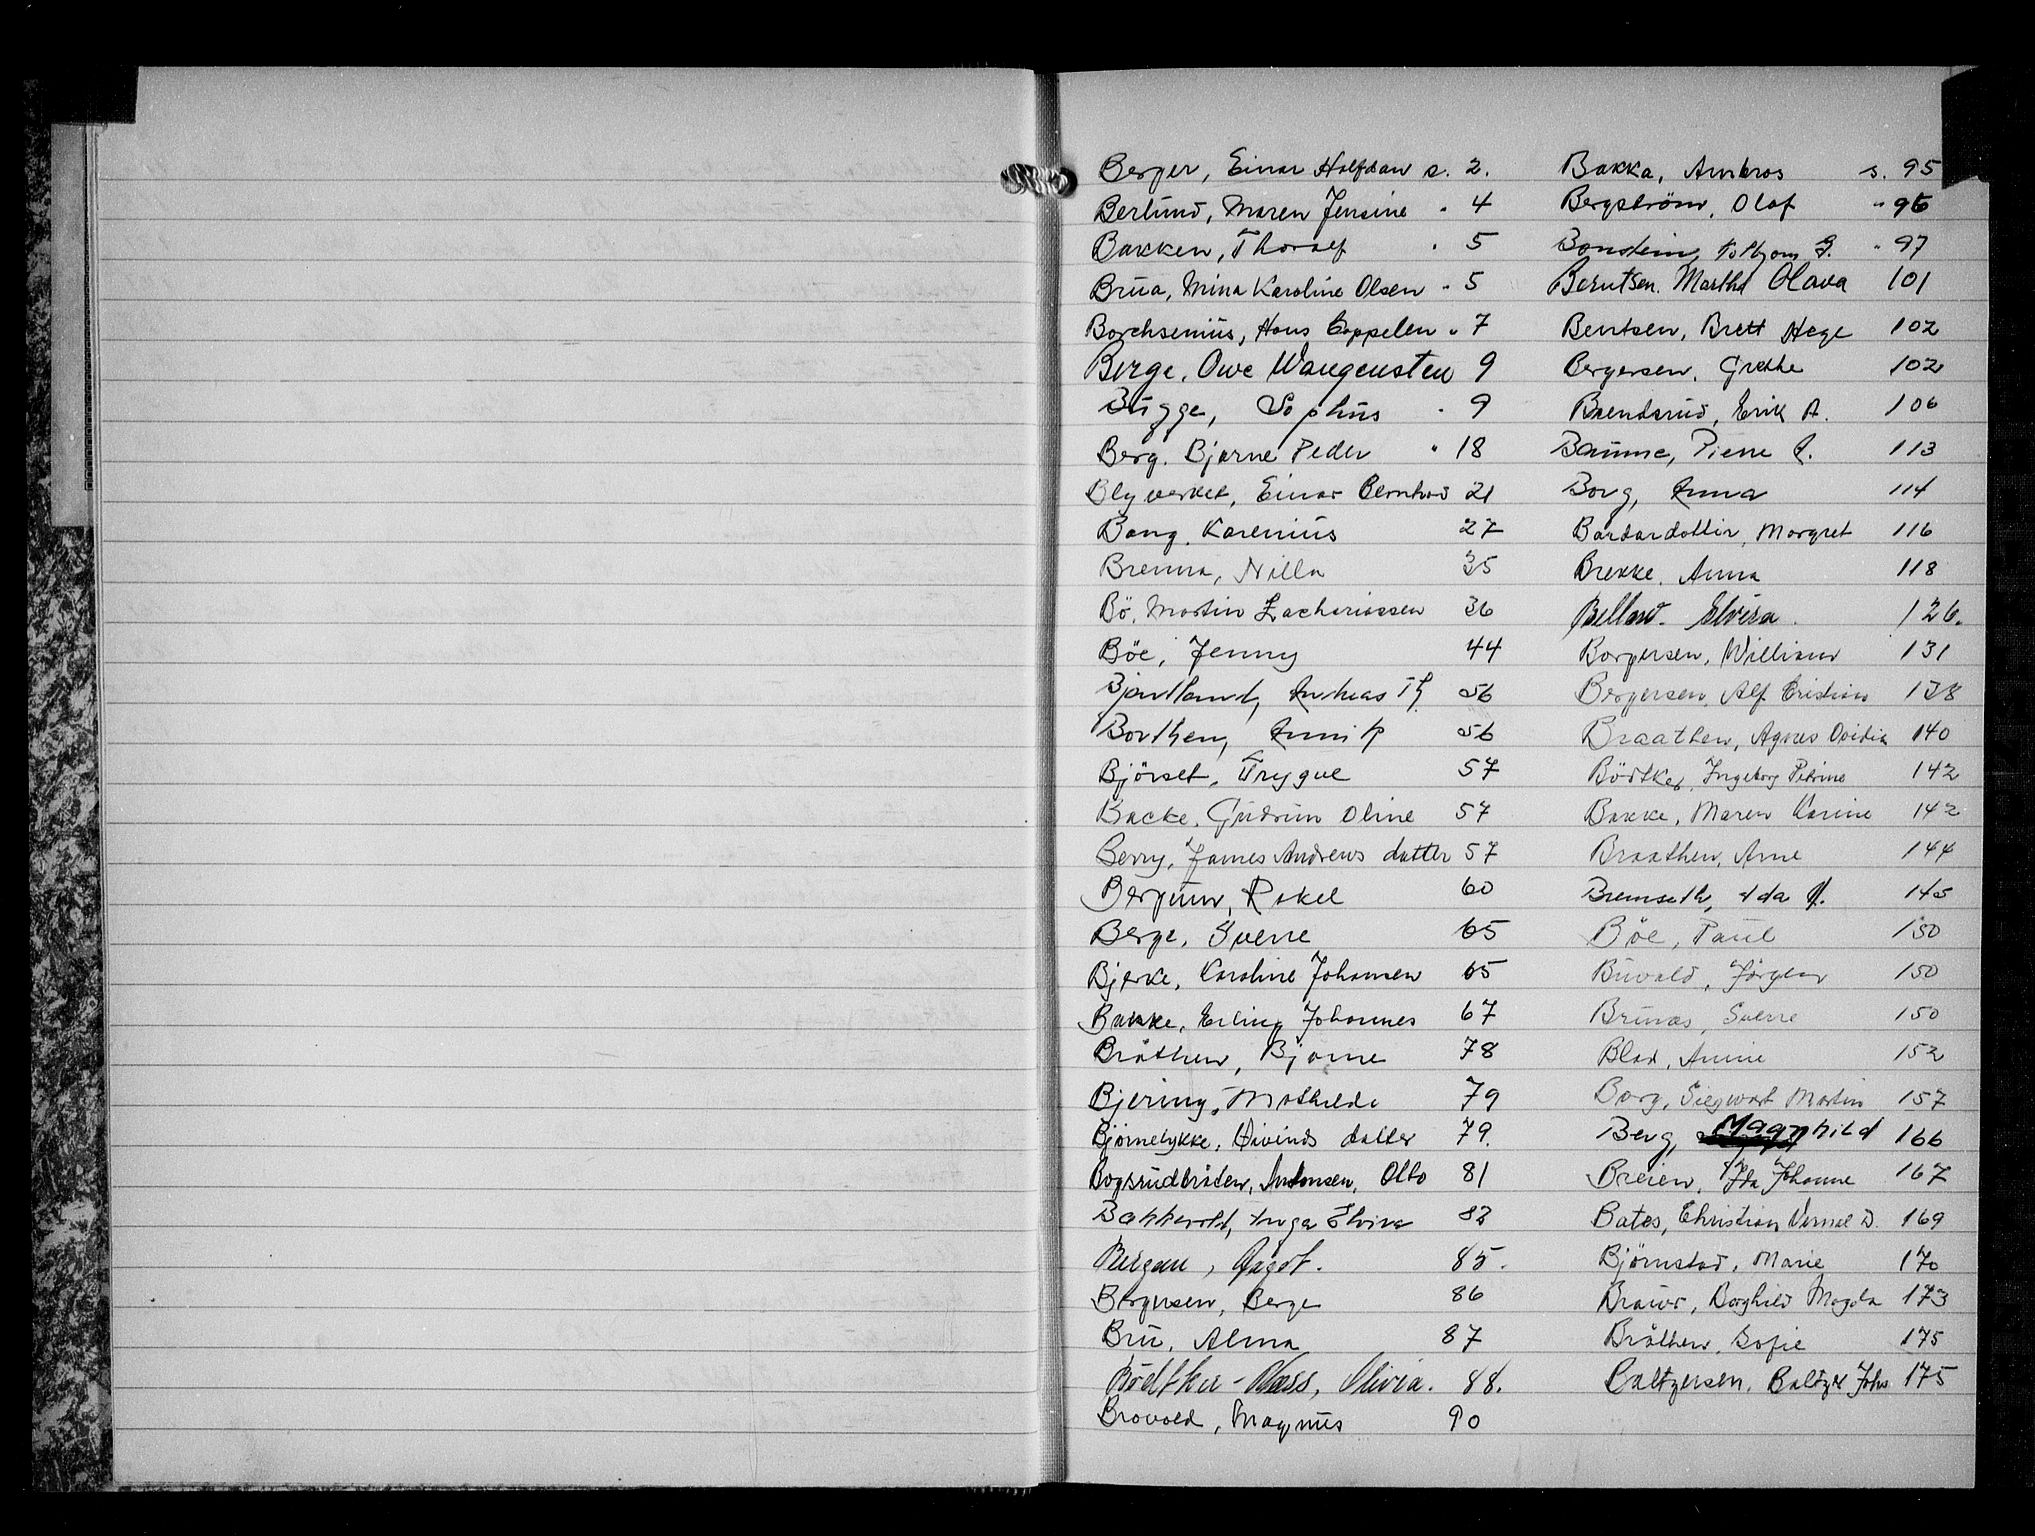 Berger, Einar Halfdan s. 2.
Berlund, Maren Jensine " 4
Bakken, Thoralf " 5
Brua, Mina Karoline Olsen " 5
Borchsenius, Hans Coppelen " 7
Berge, Owe Wangensten 9
Bugge, Sophus " 9
Berg, Bjarne Peder " 18
Blyverket, Einar Bernhard 21
Bang, Karenius 27
Brenna, Nilla 35
Bö, Martin Zachariassen 36
Böe, Jenny 44
Andreas Th. 56
Borthen, 56
Björset, Trygve 57
Backe, Gudrun Oline 57
Berry, James Andrews datter 57
Bergum, Rakel 60
Berge, Sverre 65
Bjerke, Karoline Johansen 65
Bakke, Erling Johannes 67
Bråthen, Bjarne 78
Bjering, Mathilde 79
Bjørnelykke, Eivinds datter 79.
Bogsrudbråten, Antonsen, Otto 81
Bakkerold, Inga Elvira 82
Bergan, Dagot. 85.
Bergersen, Berge 86
Bru, Alma 87
Bödtker-Næss, Olivia. 88.
Brovold, Magnus 90
Bakka, Ambros s. 95
Bergström, Olof " 96
" 97
Berntsen, Martha Olava 101
Bentsen, Brett Hege 102
Bergersen, Grethe 102
Brendsrud, Erik A. 106
Baumme, Pierre A. 113
Borg, Anna 114
Bardardottir, Margret 116
Brekke, Anna 118
Elvira 126.
Borgersen, William 131
Bergersen, Alf Cristian 138
Braathen, Agnes Ovidia 140
Bödtker, Ingeborg Petrine 142
Bakke, Maren Karine 142
Braathen, Arne 144
Bremseth, Ida M. 145
Böe, Paul 150
Buvold, Jørgen 150
Brunæs, Sverre 150
Blad, Anine 152
Borg, Siegwart Martin 157
Berg, Magnhild 166
Breien, Ida Johanne 167
Bates, Christian Vernal D. 169
Bjørnstad, Marie 170
Borghild Magda 173
Bråthen, Sofie 175
Baltzersen, Baltzer Johs 175